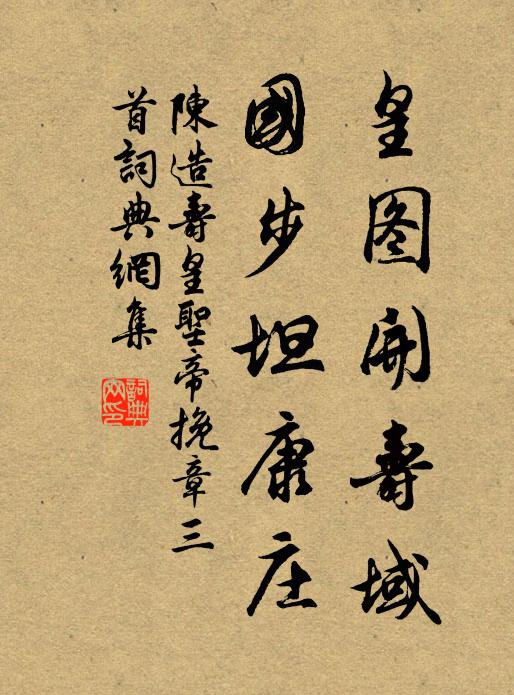 皇图開壽域
國步坦康庄
陳造壽皇聖帝挽章三
首詞典網集
詞典文印